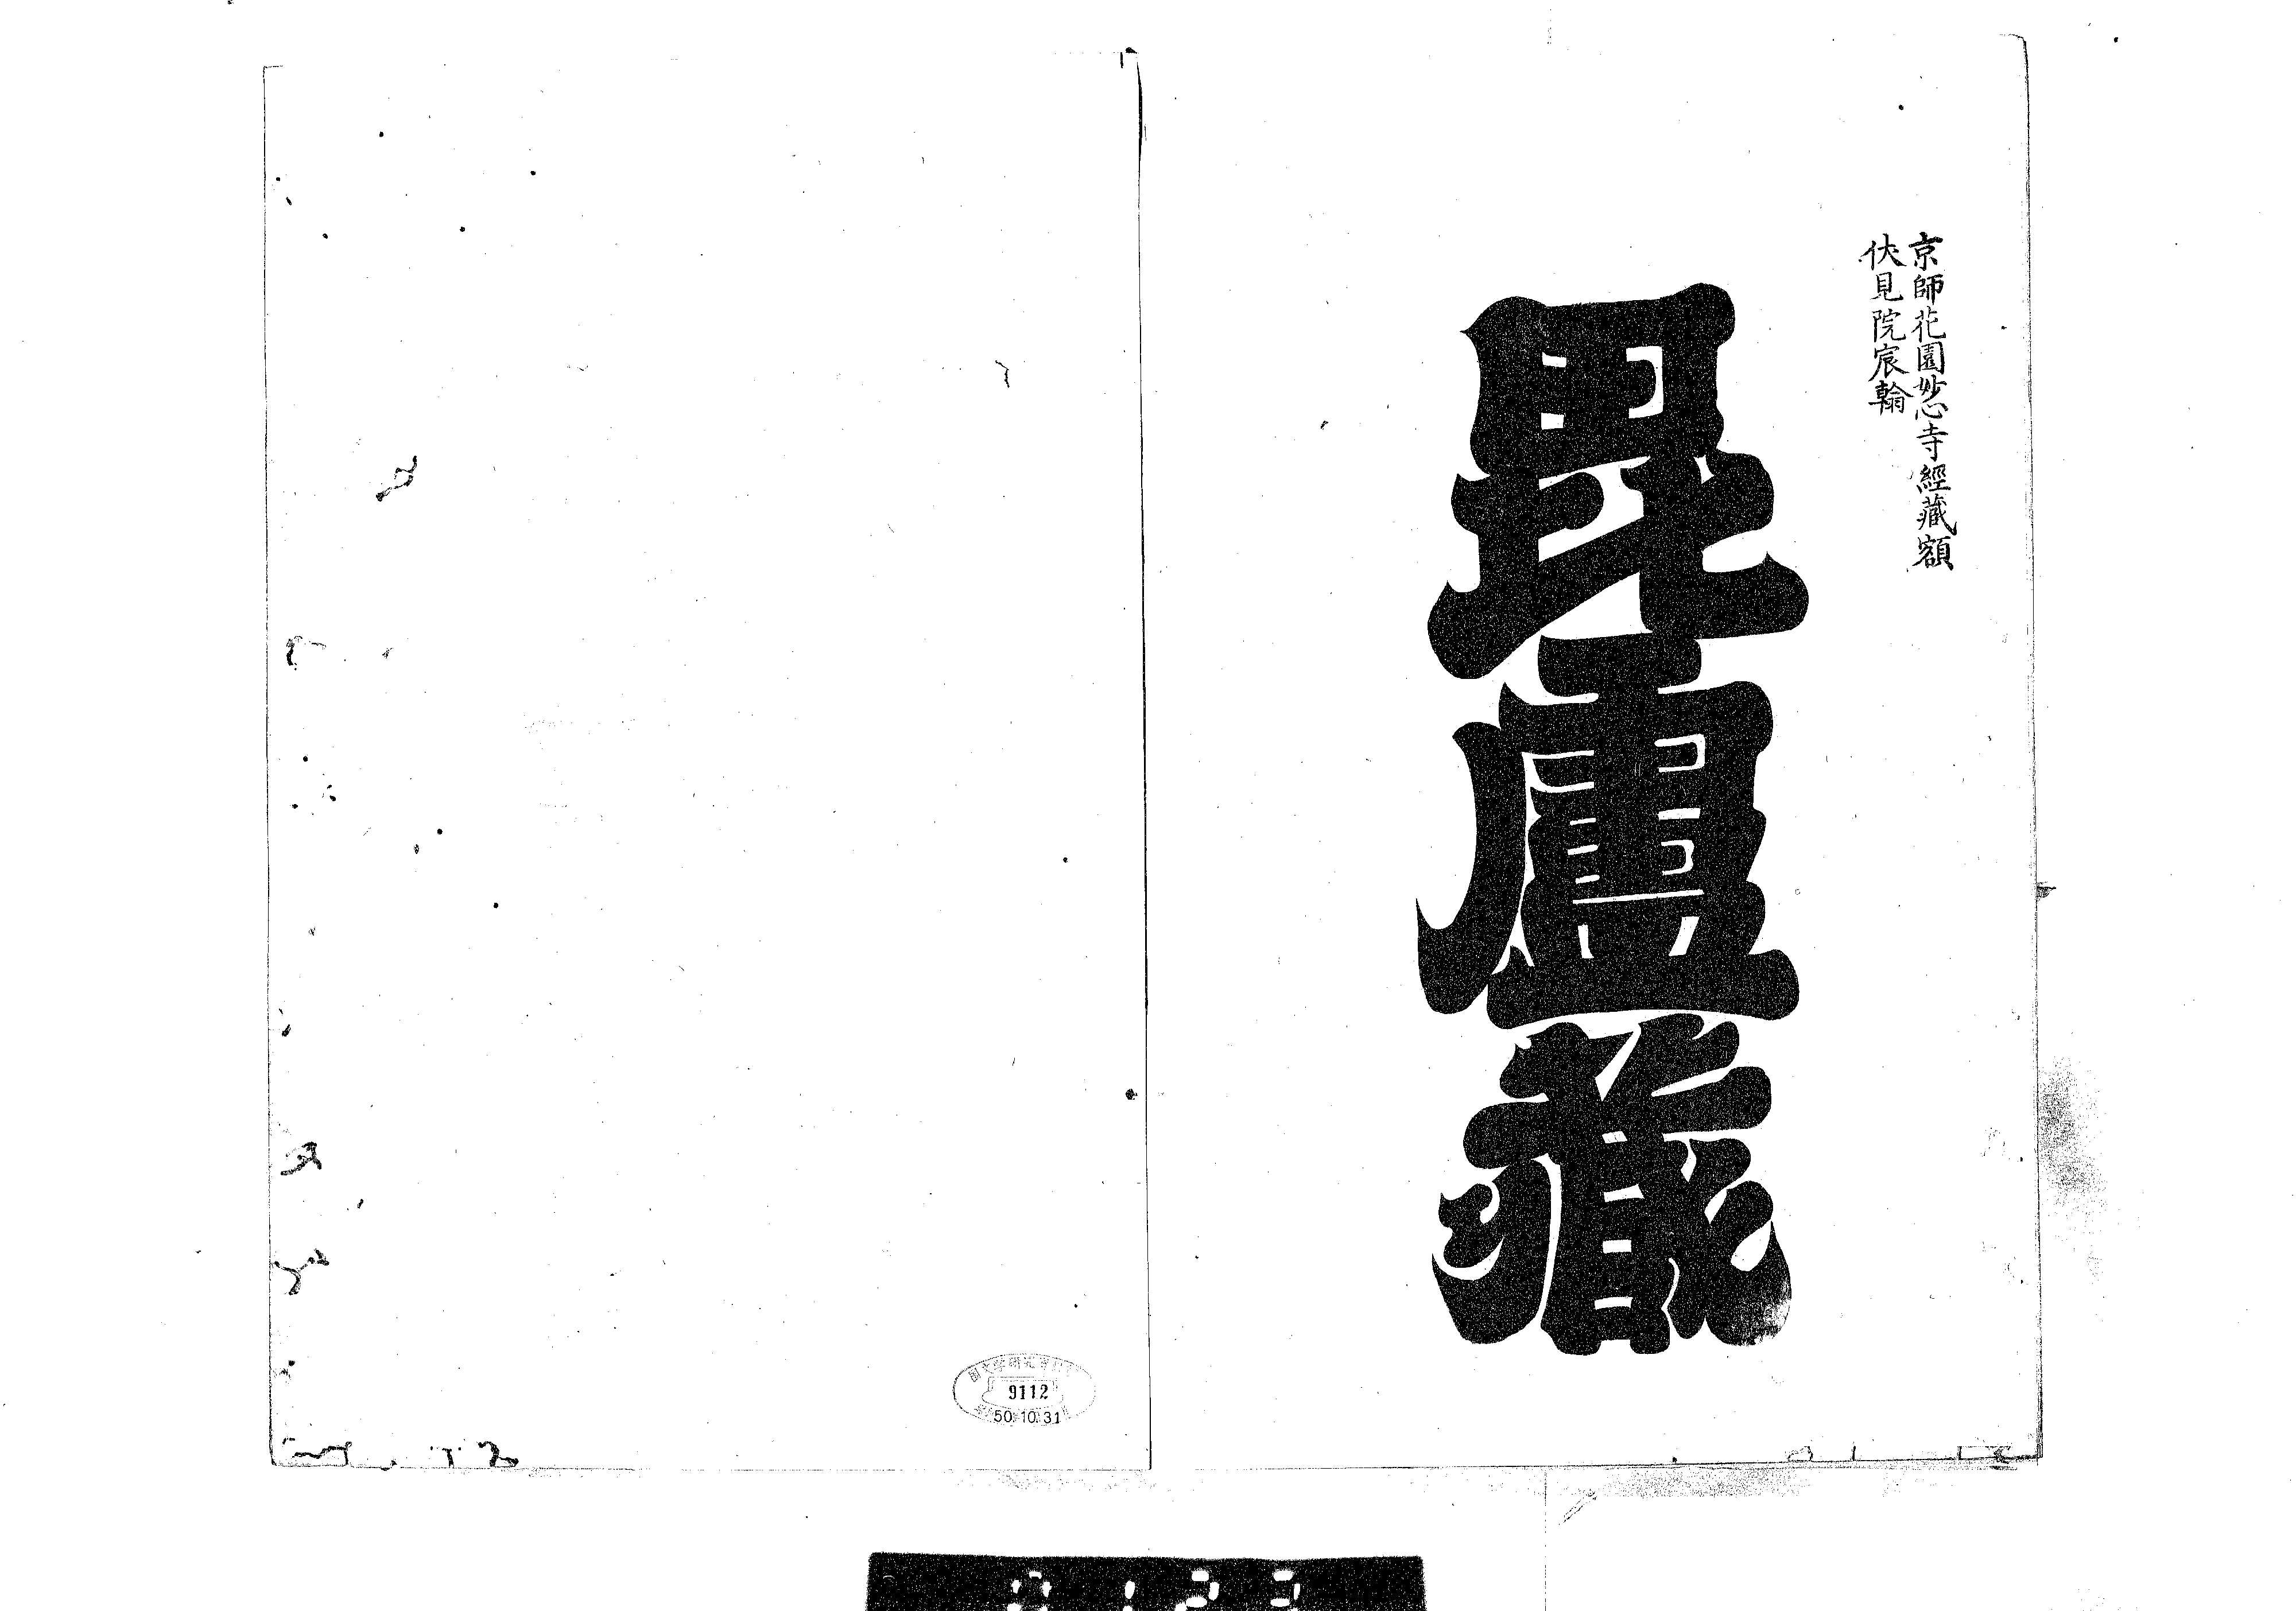 京師花園妙心寺經藏額
伏見院宸翰
毘盧藏
9112
50.10.31